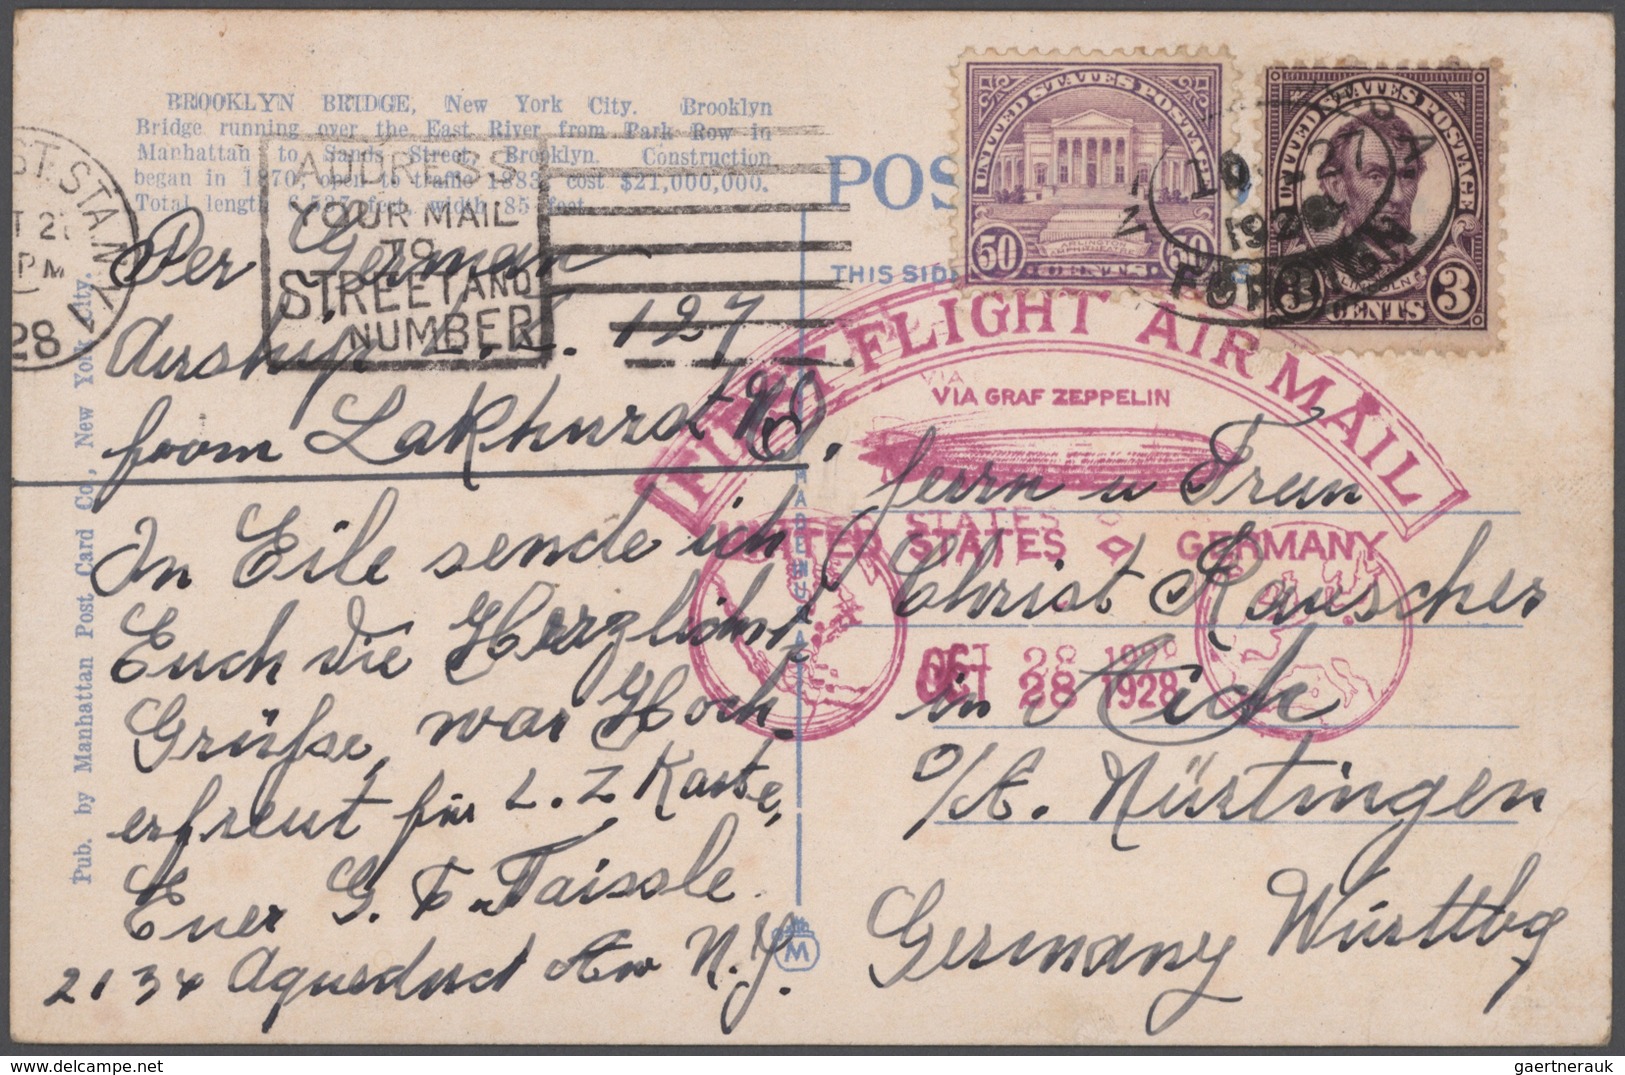 BROOKLYN BRIDGE, New York City. Brooklyn
Bridge running over the East River from Park Row in
Manhattan to Sands Street, Brooklyn. Construction
began in 1870, open to traffic 1883, cost $21,000,000.
Total length 6,537 feet, width 85 feet.
ADDRESS
YOUR MAIL
TO
STREET AND
NUMBER
ST. STA. N.Y.
PM
28
Per German
Airship L.Z. 127
from Lakhurst N.J.
In Eile sende ich
Euch die Herzlichst
Grüße, war Hoch
erfreut für L.Z Karte,
Euer G. F. Taissle
2134 Aqueduct Ave N.Y.
Pub. by Manhattan Post Card Co., New York City.
POS
THIS SIDE
MADE IN U.S.A.
M
UNITED STATES POSTAGE
50 50
CENTS
UNITED STATES POSTAGE
LINCOLN
3 3
CENTS
27
192
FOREIGN
FIRST FLIGHT AIR MAIL
VIA
VIA GRAF ZEPPELIN
STATES
UNITED STATES GERMANY
OCT 28 1928
OCT 28 1928
Herrn u Frau
Christ Rauscher
in Aich
O/A. Nürtingen
Württbg
Germany
gaertnerauk